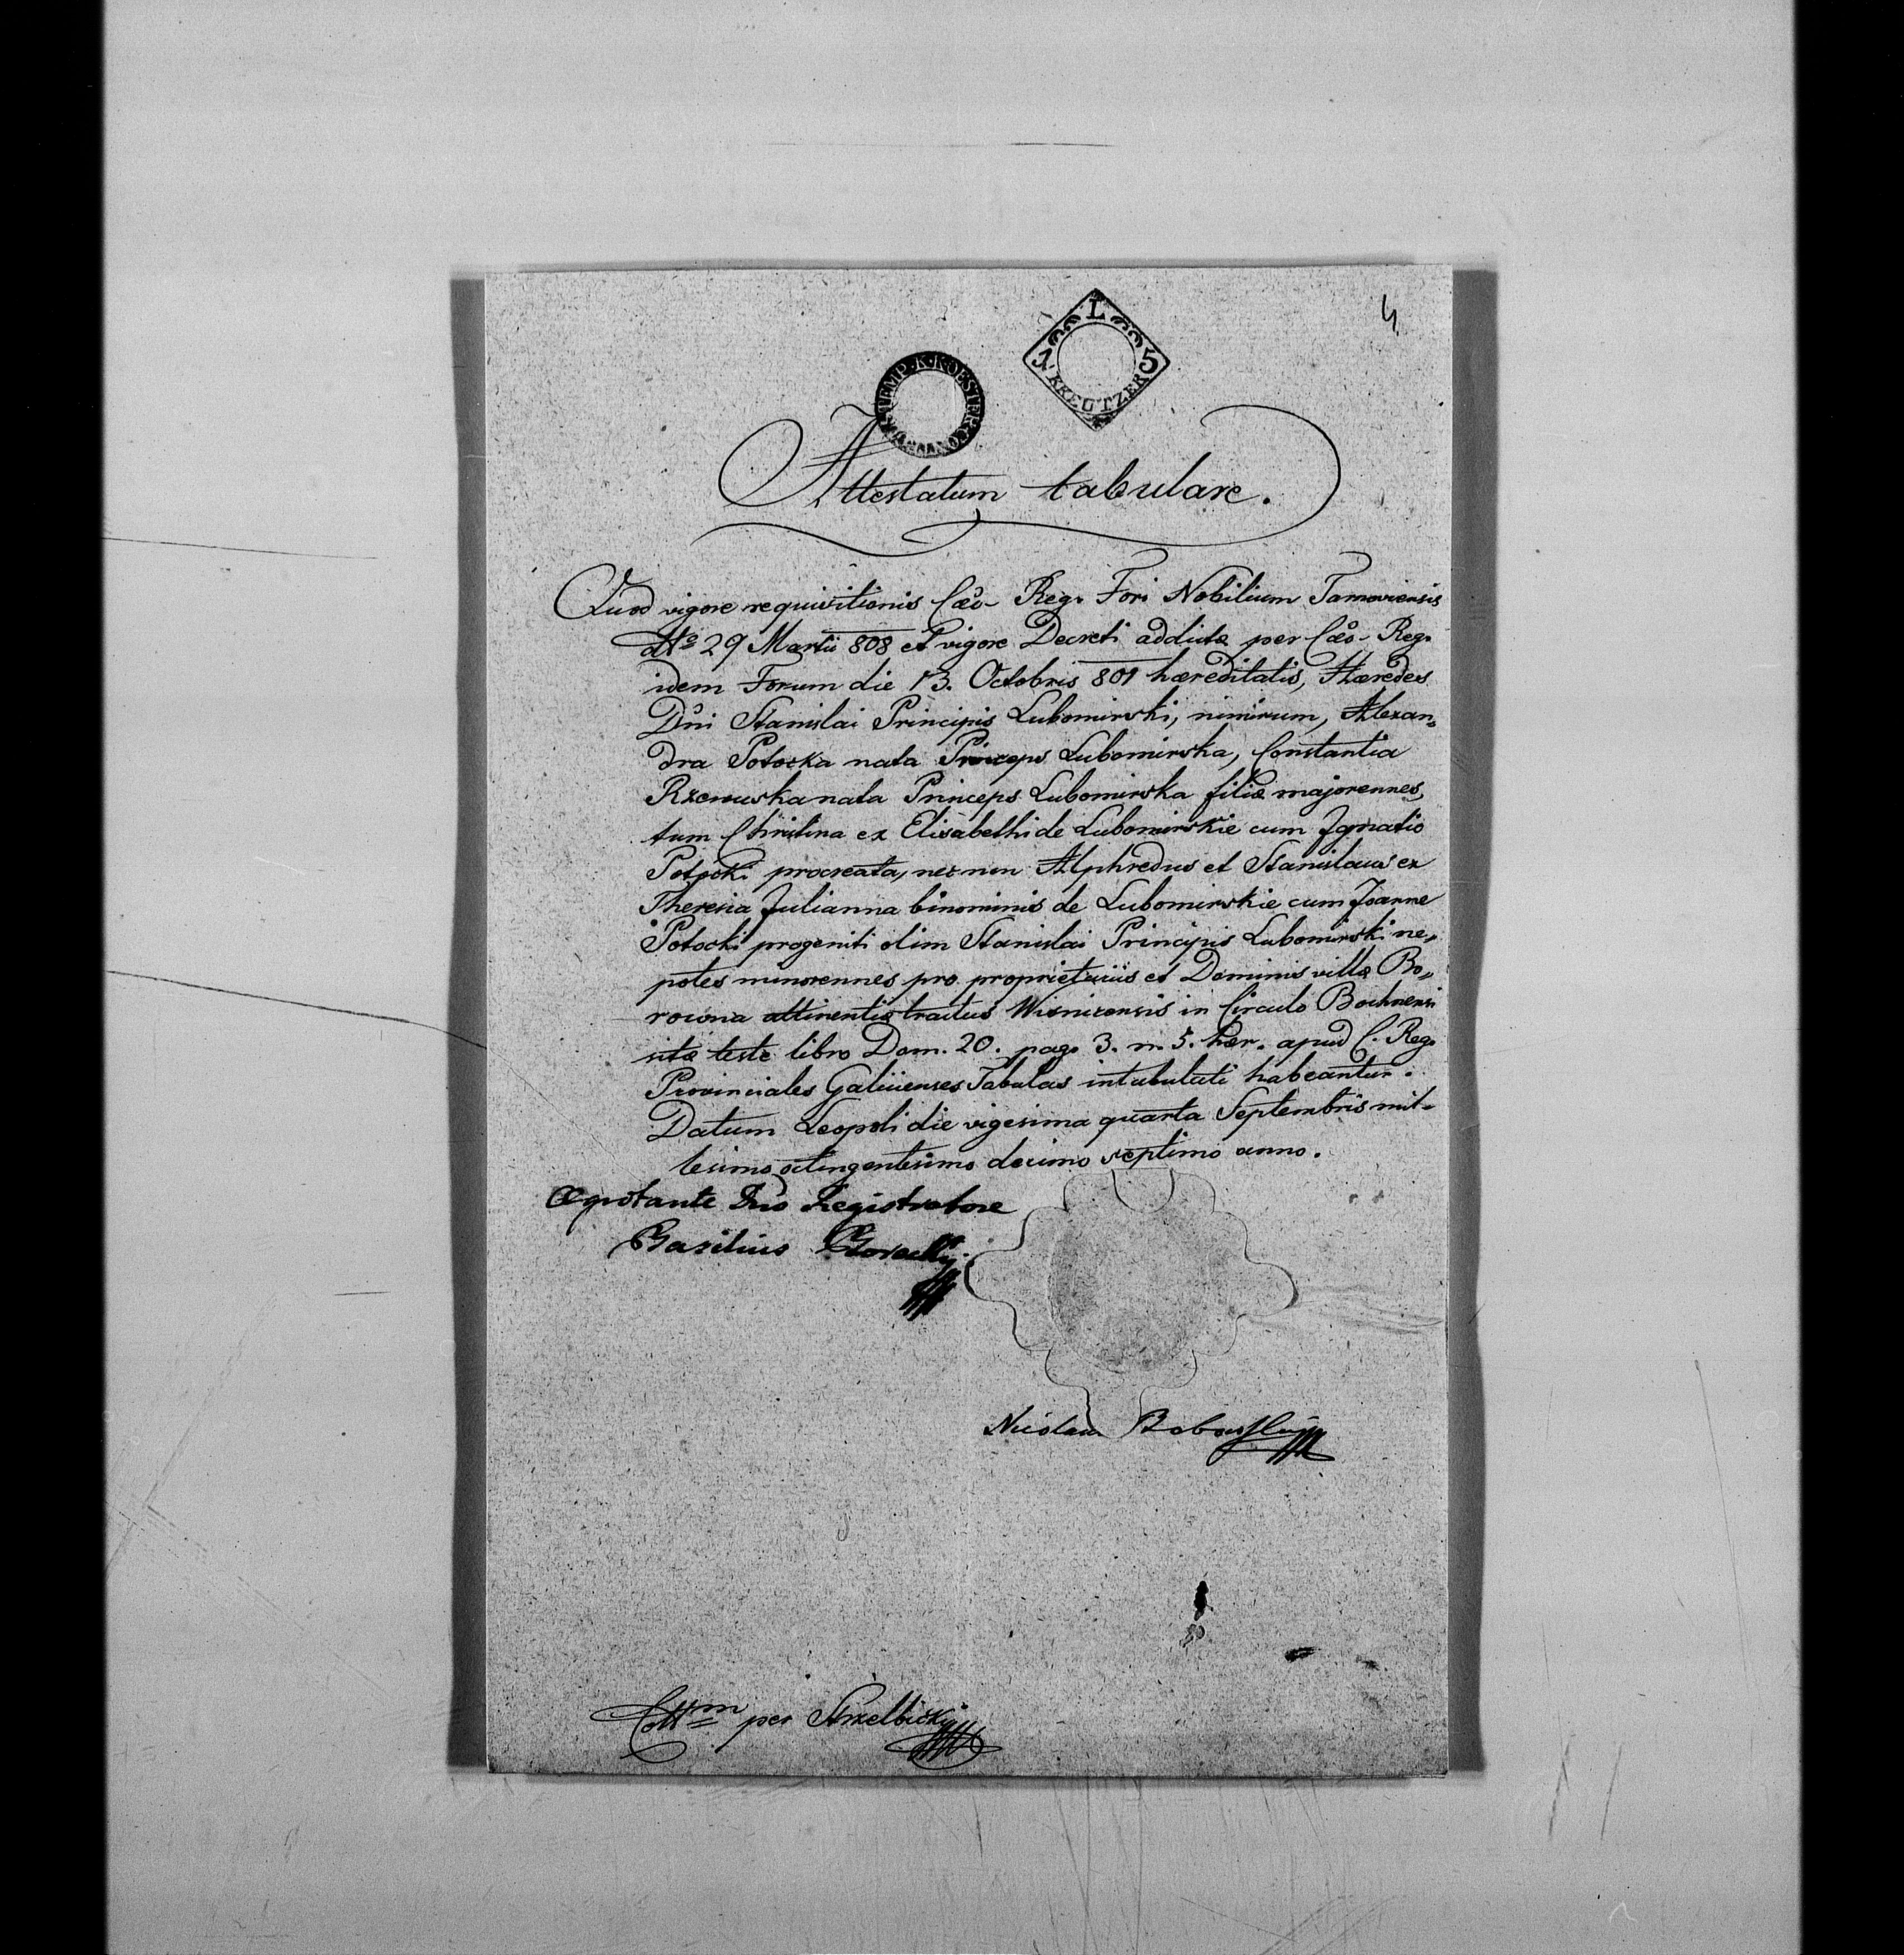 4
L
1 5
KREUTZER
STEMP·K·K·OESTER·CON
Attestatum tabulare.
Quod vigore requisitionis Cæo- Reg. Fori Nobilium Tarnoviensis
ddto 29 Martii 808 et vigore Decreti additæ per Cæo- Reg.
idem Forum die 13. Octobris 801 hæreditatis, Hæredes
Dni Stanislai Principis Lubomirski, nimirum, Alexan„
dra Potocka nata Princeps Lubomirska, Constantia
Rzewuska nata Princeps Lubomirska filiæ majorennes,
tum Christina ex Elisabethi de Lubomirskie cum Ignatio
Potocki procreata, nec non Alphredus et Stanislaus ex
Theresia Julianna binominis de Lubomirskie cum Joanne
Potocki progeniti olim Stanislai Principis Lubomirski ne„
potes minorennes pro proprietariis et Dominis villæ Bo„
rowna attinentiæ tractus Wisnicensis in Circulo Bochnensi
sitæ teste libro Dom. 20. pag. 3. n. 5. hær. apud C. Reg.
Provinciales Galicienses Tabulas intabulati habeantur.
Datum Leopoli die vigesima quarta Septembris mil-
lesimo octingentesimo decimo septimo anno.
Ægrotante Dno Registratore
Basilius
Nicolaus
Colltm per Strzelbicki